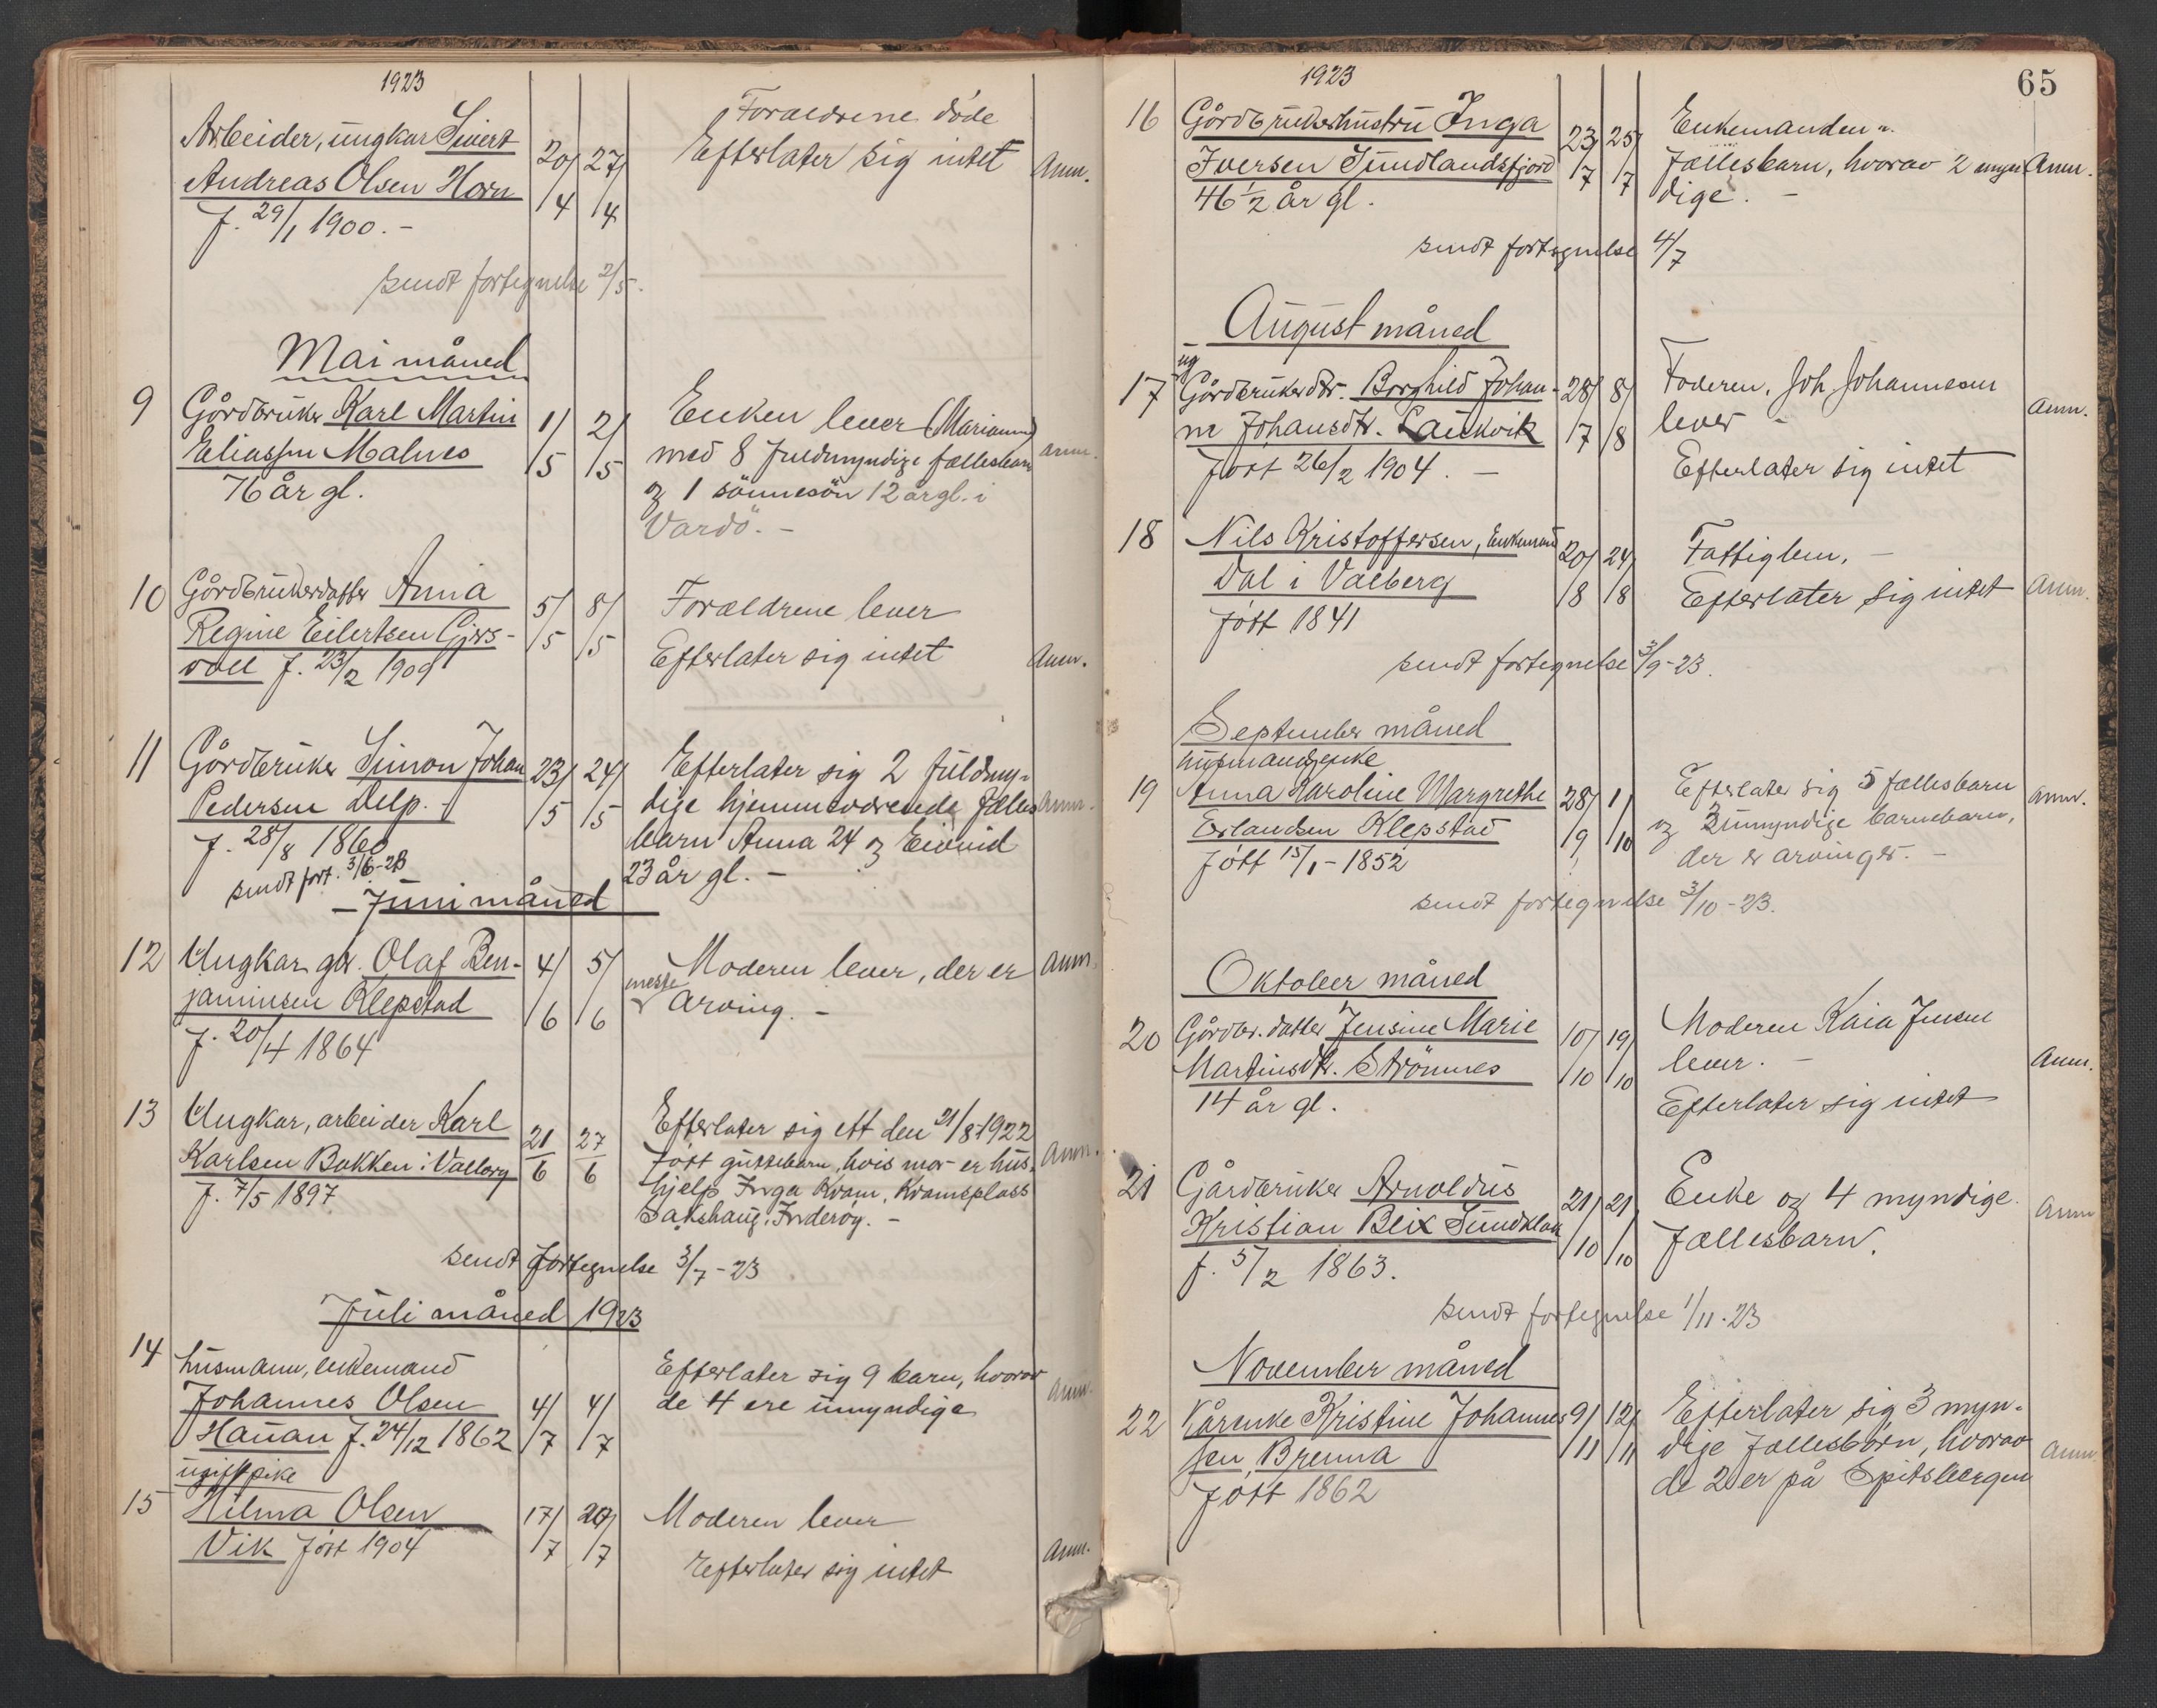 1923
Arbeider, ungkar Sivert 20/4 27/4 Foraeldrene døde
Andreas Olsen Horn Efterlater sig intet Anm.
f. 29/1 1900. -
sendt fortegnelse 2/5.
Mai måned
9 Gårdbruker Karl Martin 1/5 2/5 Enken lever (Marianne)
Eliassen Malnes med 8 fuldmyndige fællesbarn anm.
76 år gl. og 1 sönnesön 12 år gl. i
Vardö. -
10 Gårdbrukerdatter Anna 5/5 8/5 Forældrene lever
Regine Eilertsen Givs- Efterlater sig intet Anm.
voll f. 23/2 1909
11 Gårdbruker Simon Johan 23/5 24/5 Efterlater sig 2 fuldmyn-
Pedersen Delp. - dige hjemmeværende fælles Anm.
f. 28/8 1860 barn Anna 24 og Eivind
sendt fort. 3/6-23 23 år gl. -
- Juni måned
12 Ungkar gbr. Olaf Ben- 4/6 5/6 Moderen lever, der er Anm.
jaminsen Klepstad arving. -
f. 20/4 1864
13 Ungkar, arbeider Karl 21/6 27/6 Efterlater sig ett den 21/8 1922
Karlsen Bakken i Valberg født guttebarn, hvis mor er hus- Anm.
f. 7/5 1897 hjelp Inga Kvam, Kvamsplass
Sakshaug, Inderøy. -
sendt fortegnelse 3/7-23
Juli måned 1923
14 husmann, enkemand Efterlater sig 9 barn, hvorav
Johannes Olsen 4/7 4/7 de 4 ere umyndige Anm.
Hauan f. 24/12 1862
ugift pike
15 Hilma Olsen 17/7 20/7 Moderen lever
Vik født 1904 Efterlater sig intet Anm.
1923 65
16 Gårdbrukerhustru Inga 23/7 25/7 Enkemanden
Iversen Sundlandsfjord Fællesbarn, hvorav 2 umyn Anm.
46 1/2 år gl. dige. -
sendt fortegnelse 4/7
- August måned
ug
17 Gårdbrukerdtr. Borghild Johan- 28/7 8/8 Faderen, Joh. Johannesen
ne Johansdtr. Laukvik lever - Anm.
født 26/2 1904. - Efterlater sig intet
18 Nils Kristoffersen, Enkemand 20/8 24/8 Fattiglem. -
Dal i Valberg Efterlater sig intet Anm.
født 1841
sendt fortegnelse 3/9-23.
September måned
husmandsenke
19 Anna Karoline Margrethe 28/9 1/10 Efterlater sig 5 fællesbarn Anm.
Erlandsen Klepstad og 3 umyndige barnebarn,
født 15/1-1852 der er arvinger. -
sendt fortegnelse 3/10-23.
Oktober måned
20 Gårdbr. datter Jensine Marie 10/10 19/10 Moderen Kaia Jensen
Martinsdtr. Strömnes lever. - Anm.
14 år gl. Efterlater sig intet
21 Gårdbruker Arnoldus 21/10 21/10 Enke og 4 myndige Anm
Kristian Blix Sundklak Fællesbarn.
f. 5/2 1863.
sendt fortegnelse 1/11.23
November måned
22 Kårenke Kristine Johannes 9/11 12/11 Efterlater sig 3 myn-
sen, Brenna dige fællesbörn, hvorav Anm.
født 1862 de 2 er på Spitsbergen